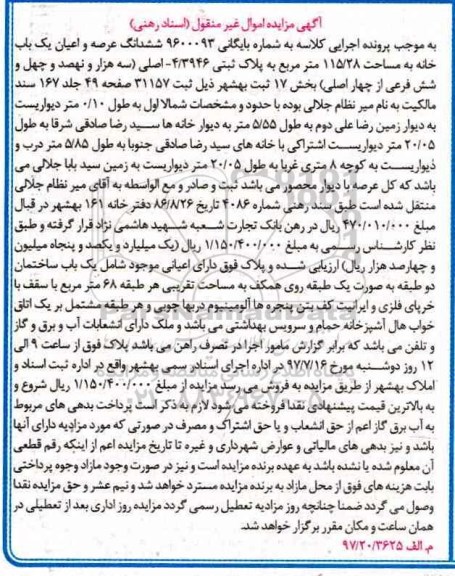 آگهی مزایده اموال غیر منقول (اسناد رهنی)
به موجب پرونده اجرایی کلاسه به شماره بایگانی ۹۶۰۰۰۹۳ ششدانگ عرصه و اعیان یک باب
خانه به مساحت ۱۱۵/۲۸ متر مربع به پلاک ثبتی ۴/۳۹۴۶- اصلی (سه هزار و نهصد و چهل و
شش فرعی از چهار اصلی) بخش ۱۷ ثبت بهشهر ذیل ثبت ۳۱۱۵۷ صفحه ۴۹ جلد ۱۶۷ سند
مالکیت به نام میر نظام جلالی بوده با حدود و مشخصات شمالا اول به طول ۰/۱۰ متر دیواریست
به دیوار زمین رضا علی دوم به طول ۵/۵۵ متر به دیوار خانه ها سید رضا صادقی شرقا به طول
۲۰/۰۵ متر دیواریست اشتراکی با خانه های سید رضا صادقی جنوبا به طول ۵/۸۵ متر درب و
دیواریست به کوچه ۸ متری غربا به طول ۲۰/۰۵ متر دیواریست به زمین سید بابا جلالی می
باشد که کل عرصه با دیوار محصور می باشد ثبت و صادر و مع الواسطه به آقای میر نظام جلالی
منتقل شده است طبق سند رهنی شماره ۴۰۸۶ تاریخ ۸۶/۸/۲۶ دفتر خانه ۱۶۱ بهشهر در قبال
مبلغ ۴۷۰/۰۱۰/۰۰۰ ریال در رهن بانک تجارت شعبه شهید هاشمی نژاد قرار گرفته و طبق
نظر کارشناس رسمی به مبلغ ۱/۱۵۰/۴۰۰/۰۰۰ ریال (یک میلیارد و یکصد و پنجاه میلیون
و چهارصد هزار ریال) ارزیابی شده و پلاک فوق دارای اعیانی موجود شامل یک باب ساختمان
دو طبقه به صورت یک طبقه روی همکف به مساحت تقریبی هر طبقه ۶۸ متر مربع با سقف با
خرپای فلزی و ایرانیت کف بتن پنجره ها آلومینیوم دربها چوبی و هر طبقه مشتمل بر یک اتاق
خواب هال آشپزخانه حمام و سرویس بهداشتی می باشد و ملک دارای انشعابات آب و برق و گاز
و تلفن می باشد که برابر گزارش مامور اجرا در تصرف راهن می باشد پلاک فوق از ساعت ۹ الی
۱۲ روز دوشنبه مورخ ۹۷/۷/۱۶ در اداره اجرای اسناد رسمی بهشهر واقع در اداره ثبت اسناد و
املاک بهشهر از طریق مزایده به فروش می رسد مزایده از مبلغ ۱/۱۵۰/۴۰۰/۰۰۰ ریال شروع و
به بالاترین قیمت پیشنهادی نقدا فروخته می شود لازم به ذکر است پرداخت بدهی های مربوط
به آب برق گاز اعم از حق انشعاب و یا حق اشتراک و مصرف در صورتی که مورد مزایده دارای آنها
باشد و نیز بدهی های مالیاتی و عوارض شهرداری و غیره تا تاریخ مزایده اعم از اینکه رقم قطعی
آن معلوم شده یا نشده باشد به عهده برنده مزایده است و نیز در صورت وجود مازاد وجوه پرداختی
بابت هزینه های فوق از محل مازاد به برنده مزایده مسترد خواهد شد و نیم عشر و حق مزایده نقدا
وصول می گردد ضمنا چنانچه روز مزایده تعطیل رسمی گردد مزایده روز اداری بعد از تعطیلی در
همان ساعت و مکان مقرر برگزار خواهد شد.
م. الف ۹۷/۲۰/۳۶۲۵